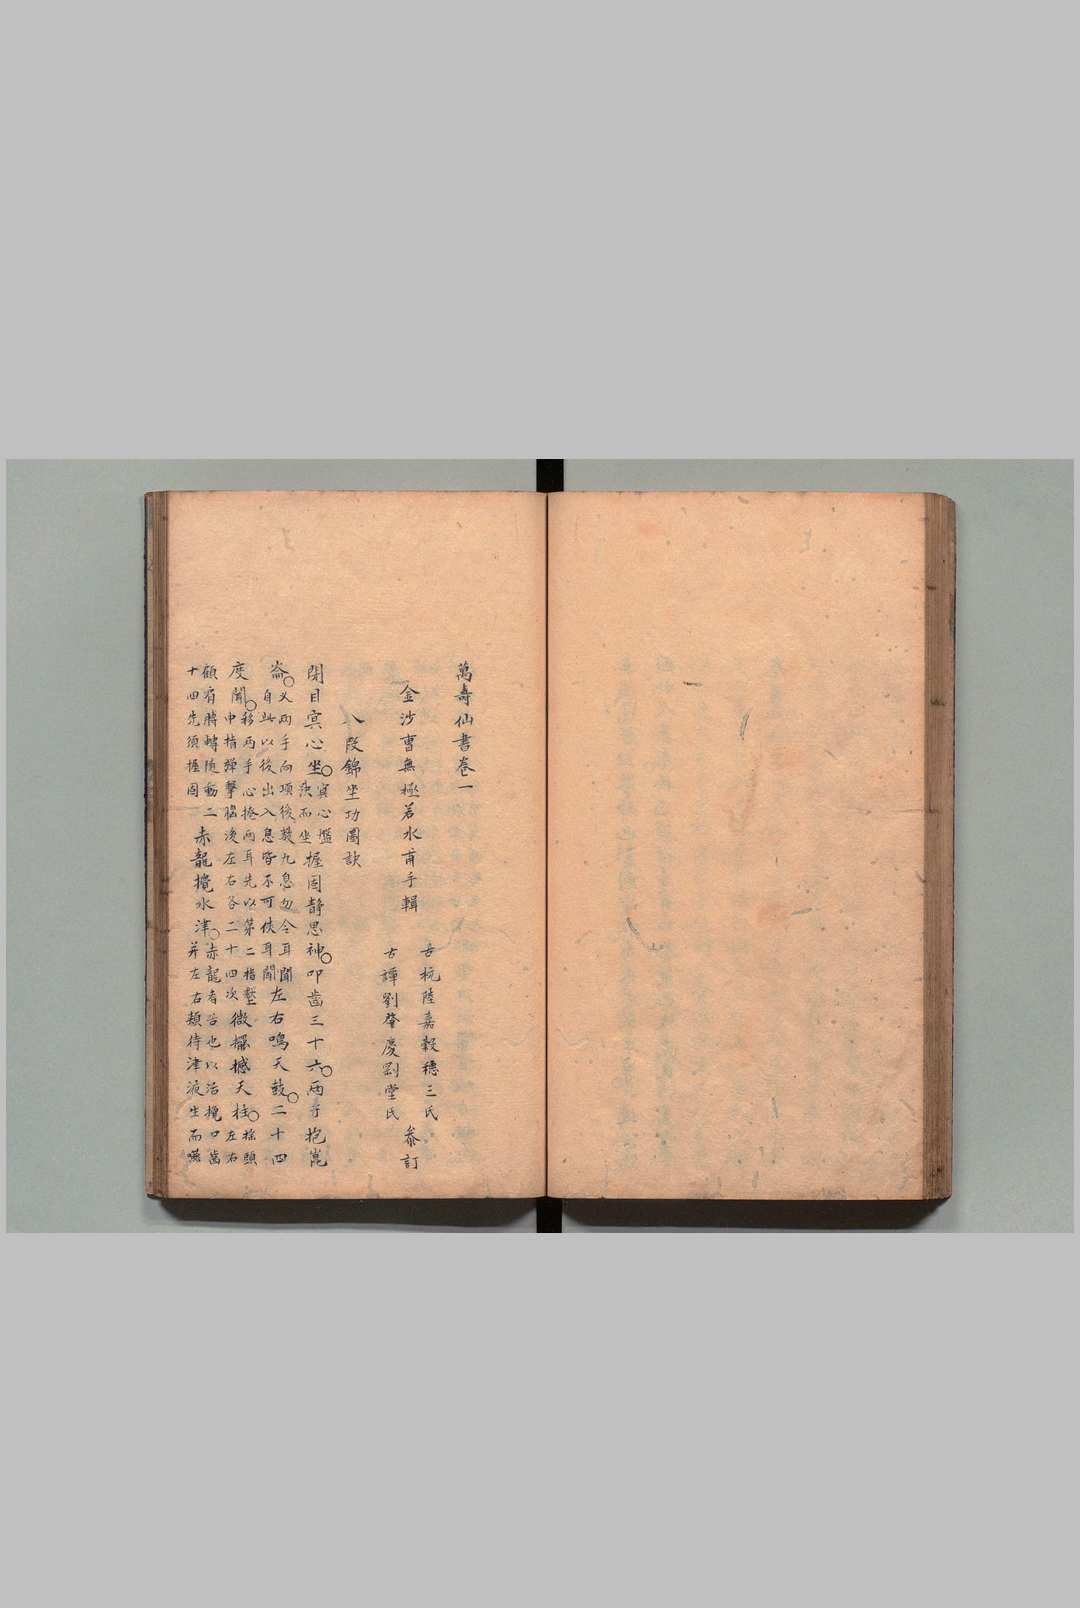 萬壽仙書卷一
金沙曹無極若水甫手輯
古杭陸嘉穀穗三氏
古譚劉肇慶劉堂氏
參訂
八段錦坐功圖訣
閉目冥心坐○冥心盤趺而坐握固靜思神○叩齒三十六○兩手抱崑
崙○又兩手向項後數九息勿令耳聞自此以後出入息皆不可使耳聞左右鳴天鼓○二十四
度聞○移兩手心掩兩耳先以第二指壓中指彈擊腦後左右各二十四次微擺撼天柱○搖頭左右
顧肩膊轉隨動二十四先須握固赤龍攪水津○赤龍者舌也以舌攪口齒并左右頰待津液生而嚥